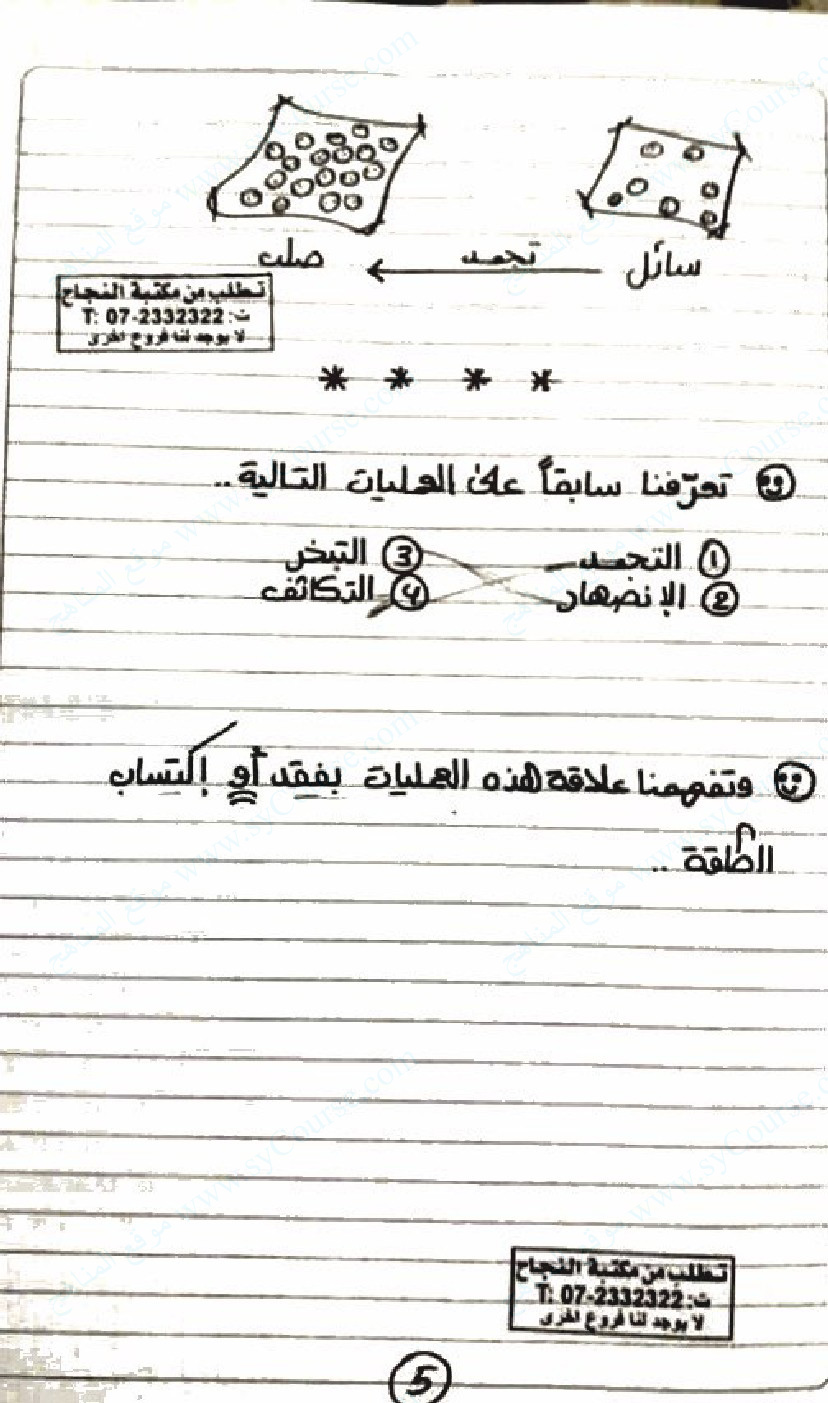 سائل تجمد صلب
تطلب من مكتبة النجاح
ت: 2332322-07 :T
لا يوجد لنا فروع اخرى
* * * *
تعرّفنا سابقاً على العمليات التالية..
① التجمد ③ التبخر
② الإنصهار ④ التكاثف
وتفهمنا علاقة هذه العمليات بفقد أو إكتساب
الطاقة ..
تطلب من مكتبة النجاح
ت: 2332322-07 :T
لا يوجد لنا فروع اخرى
5
موقع المناهج www.syCourse.com